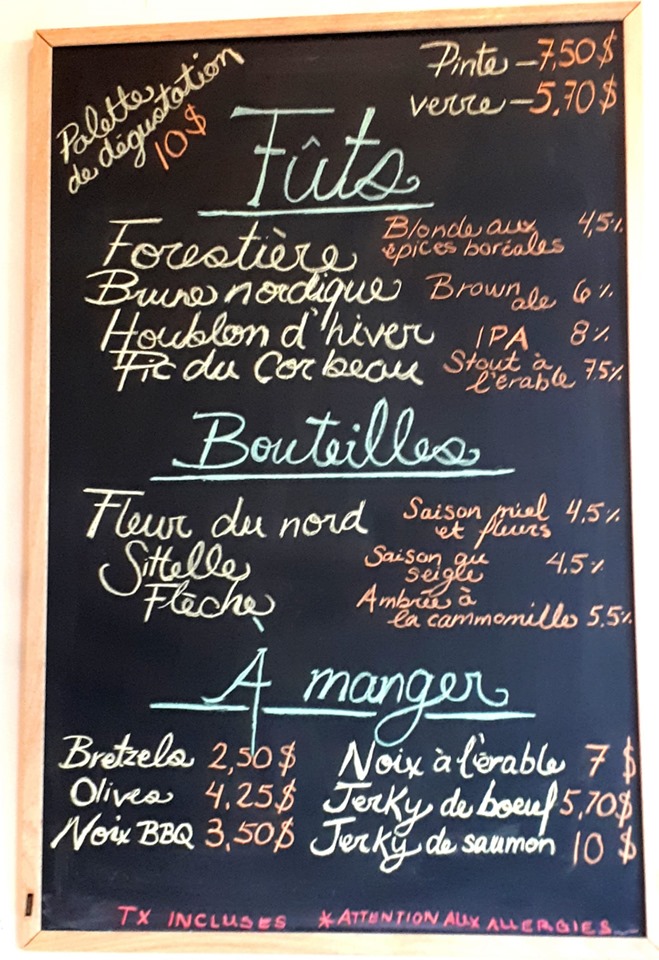 Palette
de dégustation
10$
Pinte – 7,50$
verre – 5,70$
Fûts
Forestière Blonde aux épices boréales 4,5%
Brune nordique Brown ale 6%
Houblon d'hiver IPA 8%
Pic du Corbeau Stout à l'érable 7.5%
Bouteilles
Fleur du nord Saison miel et fleurs 4.5%
Sittelle Saison au seigle 4.5%
Flèche Ambrée à la cammomille 5.5%
À manger
Bretzels 2,50$ Noix à l'érable 7$
Olives 4,25$ Jerky de boeuf 5,70$
Noix BBQ 3,50$ Jerky de saumon 10$
TX INCLUSES *ATTENTION AUX ALLERGIES